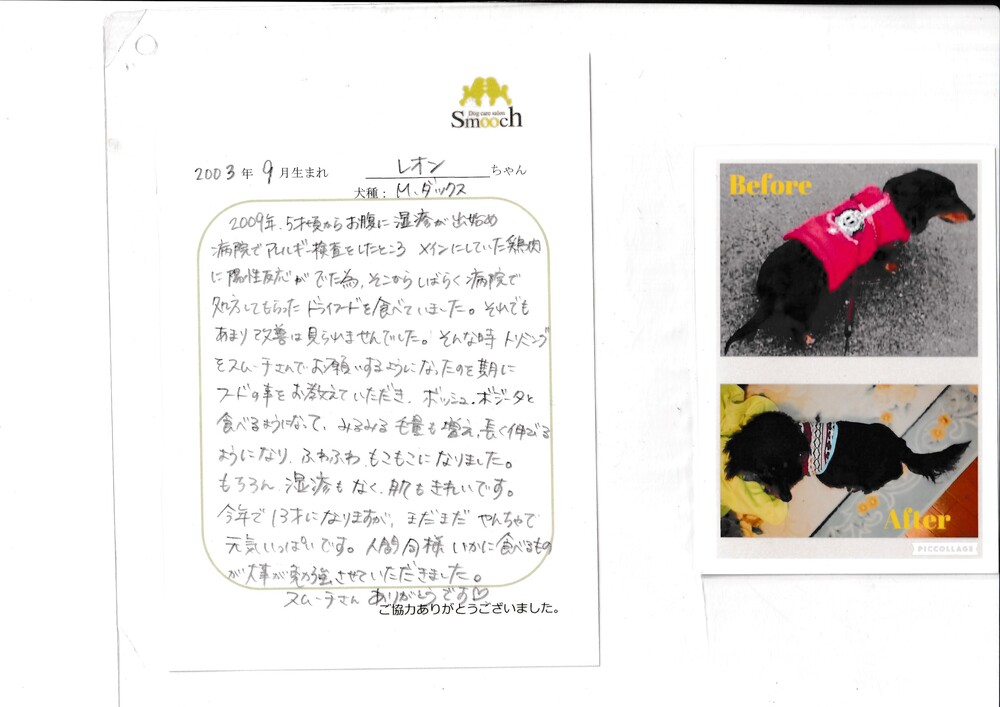 Dog care salon
Smooch
2003年 9月生まれ レオン ちゃん
犬種： M.ダックス
2009年、5才頃からお腹に湿疹が出始め
病院でアレルギー検査をしたところ メインにしていた鶏肉
に陽性反応がでた為、そこからしばらく病院で
処方してもらったドライフードを食べていました。それでも
あまり改善は見られませんでした。そんな時トリミング
をスムーチさんでお願いするようになったのを期に
フードの事をお教えていただき、ボッシュ、ボジータと
食べるようになって、みるみる毛量も増え、長く伸びる
ようになり、ふわふわ、もこもこになりました。
もちろん、湿疹もなく、肌もきれいです。
今年で13才になりますが、まだまだやんちゃで
元気いっぱいです。人間同様いかに食べるもの
が大事か勉強させていただきました。
スムーチさん ありがとうです♡
ご協力ありがとうございました。
Before
After
PICCOLLAGE